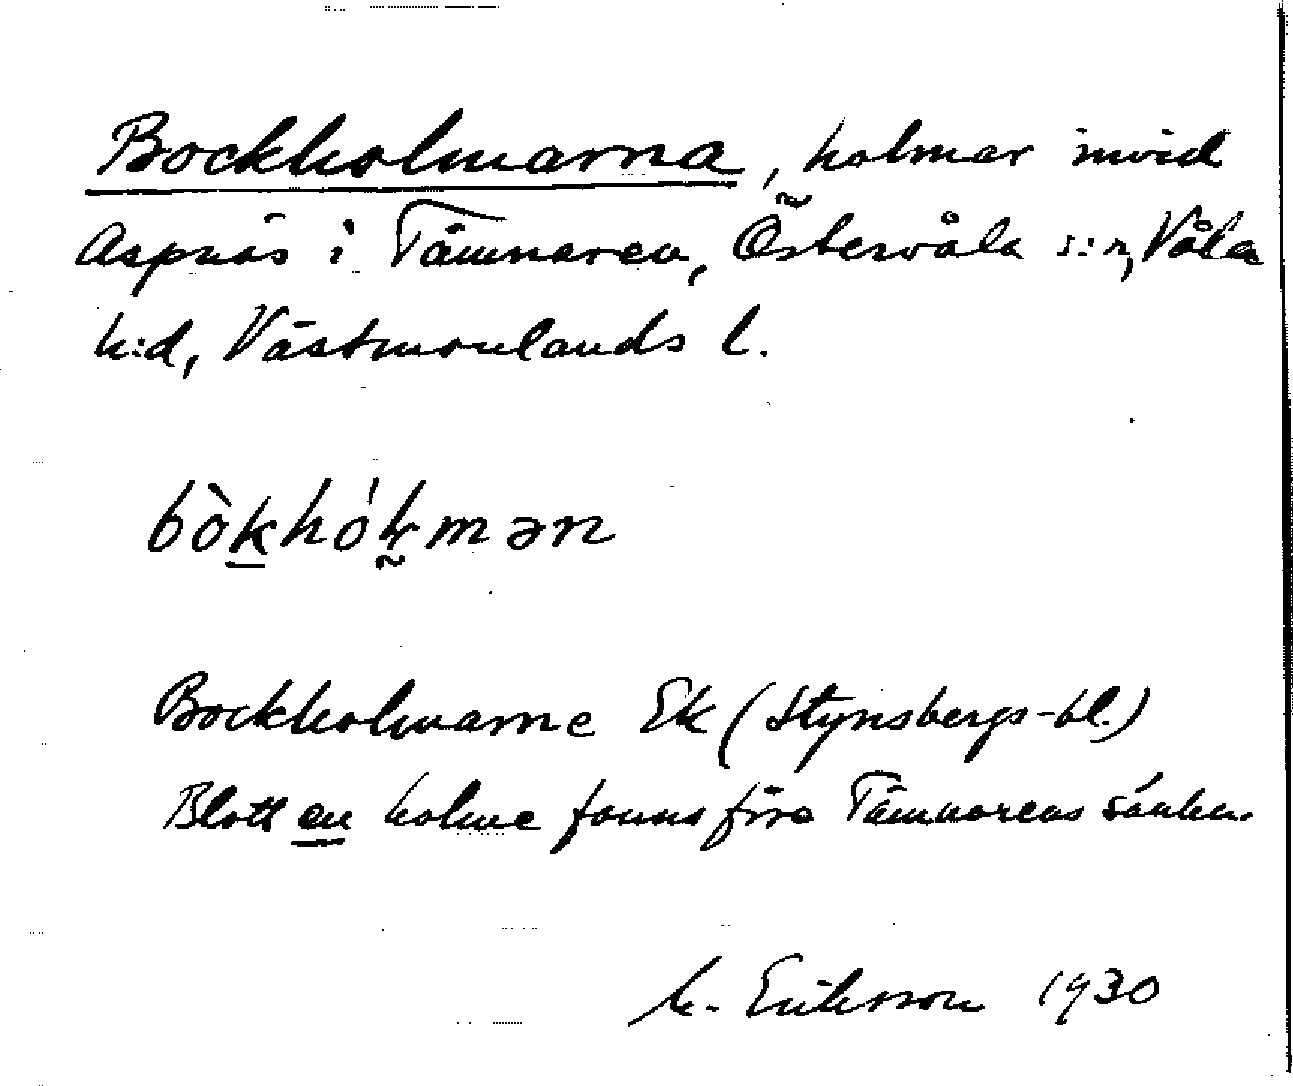 Bockholmarna, holmar invid
Aspnäs i Tämnaren, Östervåla s:n, Våla
h:d, Västmanlands l.
bòkhóɫmən
Bockholmarne Ek (Stynsbergs-bl.)
Blott en holme fanns före Tämnarens sänkn.
M. Eriksson 1930